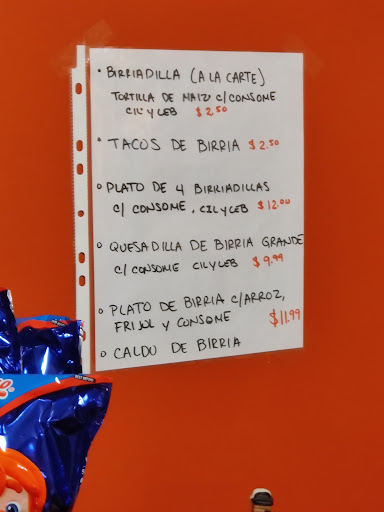 • BIRRIADILLA (A LA CARTE)
TORTILLA DE MAIZ C/CONSOME
CIL Y CEB $2.50
• TACOS DE BIRRIA $2.50
• PLATO DE 4 BIRRIADILLAS
C/ CONSOME, CIL Y CEB $12.00
• QUESADILLA DE BIRRIA GRANDE
C/ CONSOME CIL Y CEB $9.99
• PLATO DE BIRRIA C/ARROZ,
FRIJOL Y CONSOME $11.99
• CALDO DE BIRRIA